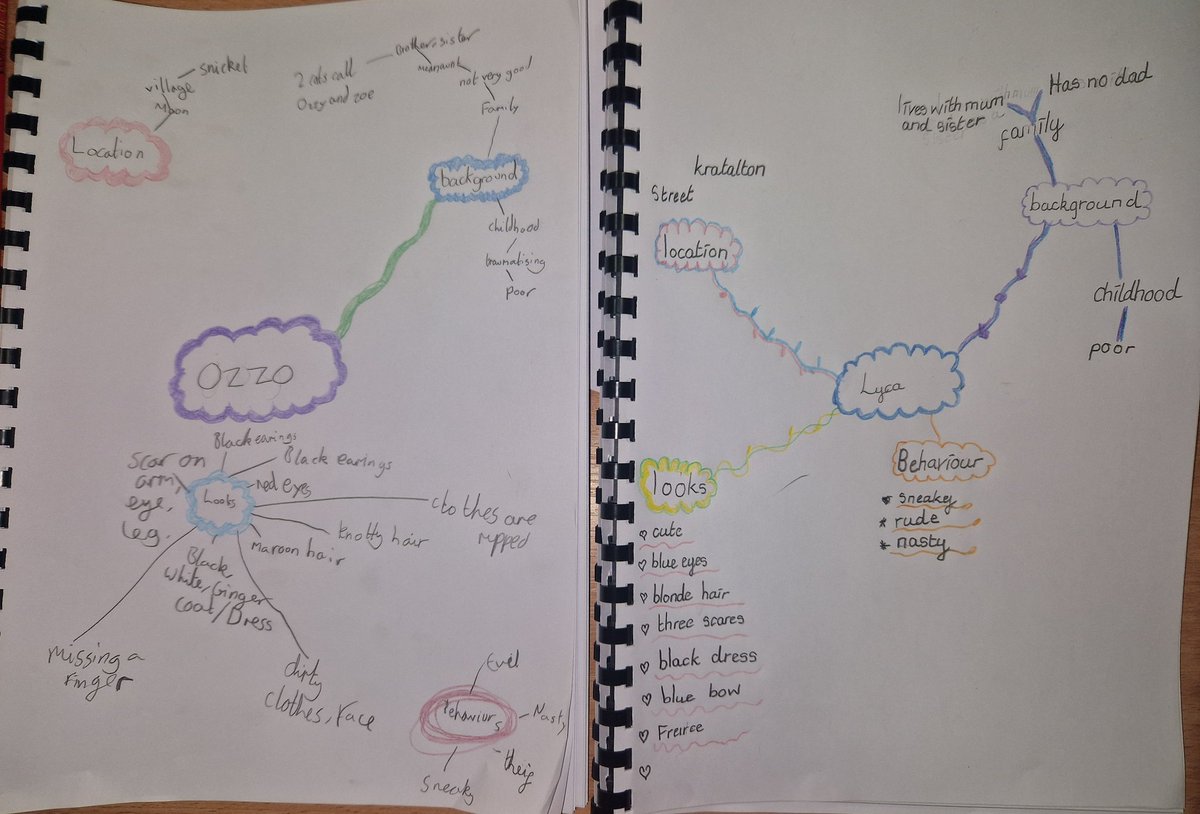 snicket
village
Moon
Location
2 cats call
Ozzy and zoe
Brother + sister
not very good
Family
background
childhood
traumatising
poor
OZZO
Black earings
Black earings
Red eyes
scar on
arm,
eye,
leg.
Looks
clothes are
ripped
knotty hair
maroon hair
Black
white, Ginger
coat/Dress
missing a
Finger
dirty
clothes, Face
Evil
Behaviours
Nasty
Sneaky
Has no dad
lives with mum
and sister
family
background
childhood
poor
kratalton
Street
location
Lyca
looks
cute
blue eyes
blonde hair
three scares
black dress
blue bow
Freirce
Behaviour
sneaky
rude
nasty